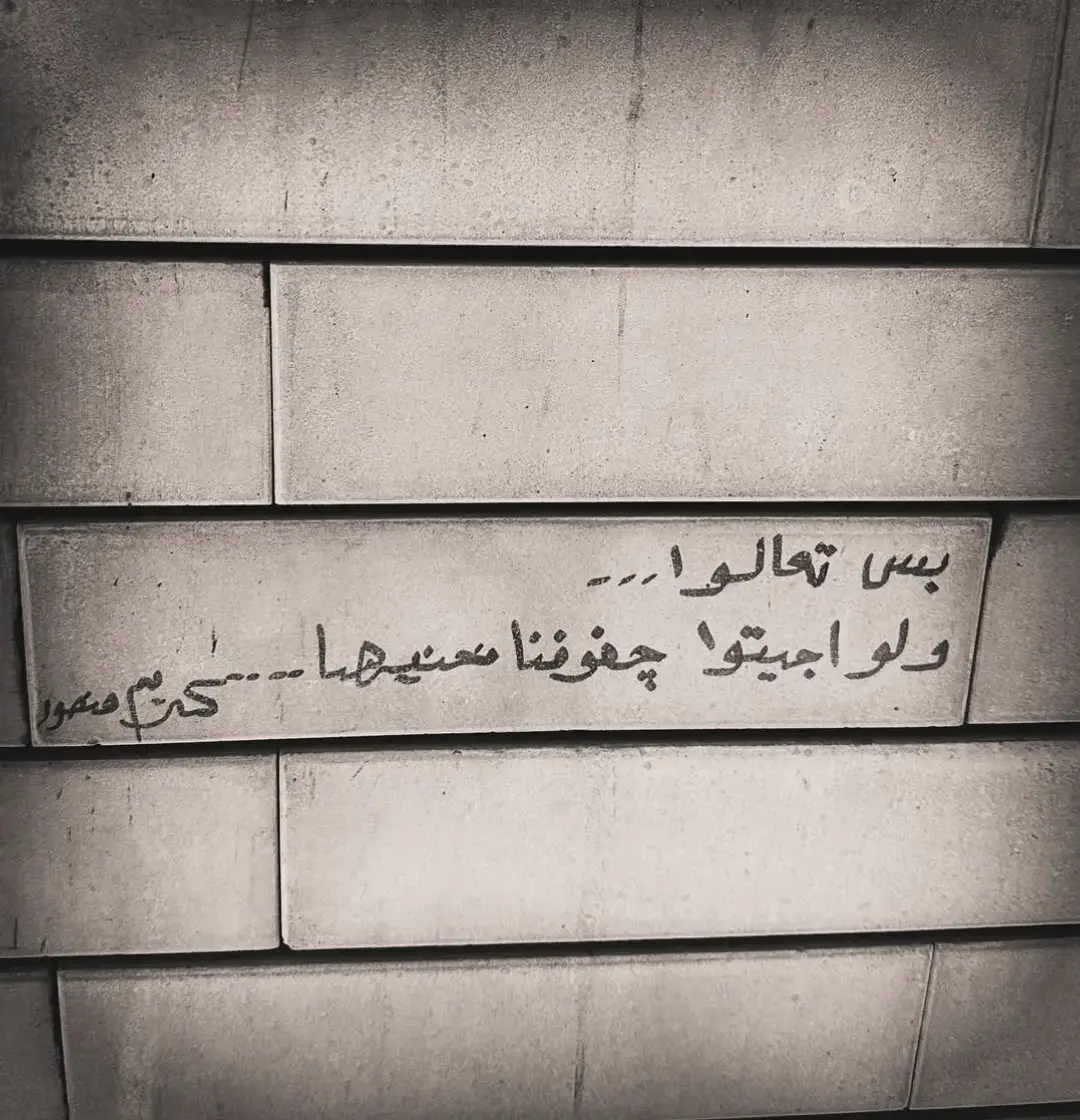 بس تعالوا...
ولو اجيتوا چفوفنا محنيهـا.... كريم منصور